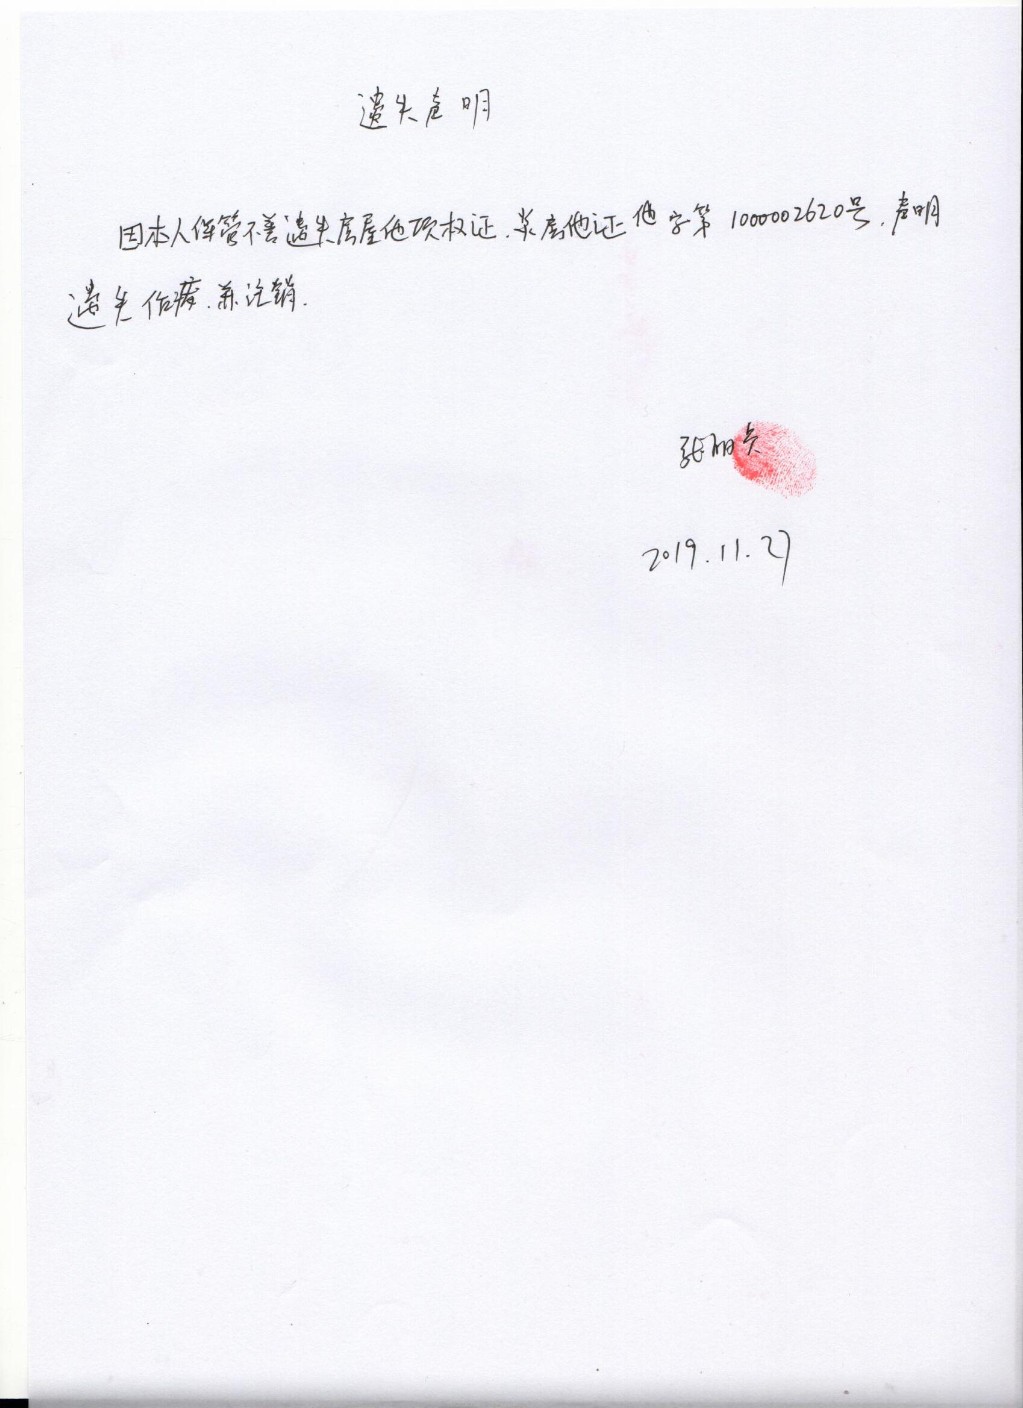 遗失声明
因本人保管不善遗失房屋他项权证.莱房他证他字第1000002620号.声明
遗失作废.并注销.
张
2019.11.27